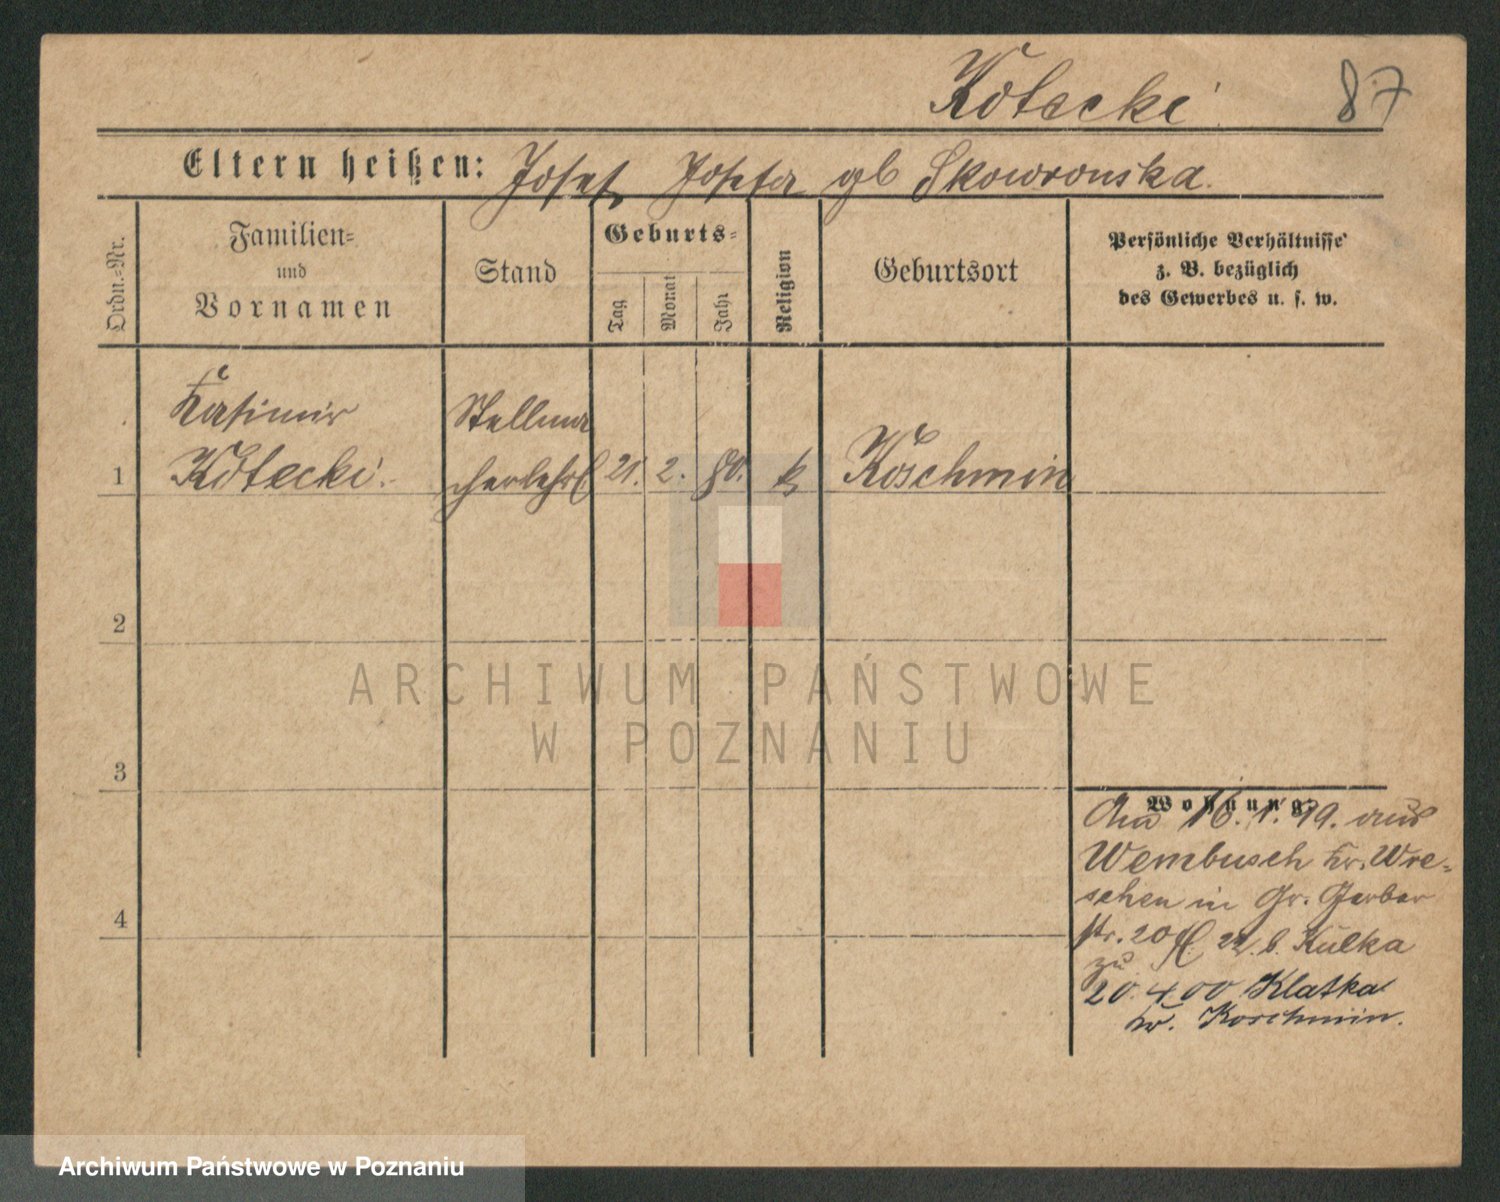 Kotecki
87
Eltern heißen: Josef, Josefa gb Skowronska.
Ordn.=Nr.
Familien=
und
Vornamen
Stand
Geburts=
Tag
Monat
Jahr
Religion
Geburtsort
Persönliche Verhältnisse
z. B. bezüglich
des Gewerbes u. s. w.
Kasimir
Kotecki.
Stellma
cherlehrl
1
21. 2. 80. k
Koschmin
2
ARCHIWUM PAŃSTWOWE
W POZNANIU
3
Wohnung:
16. 1. 99. aus
Wembusch Kr. Wre-
schen in Gr. Gerber
str. 20 b. Kulka
zu
20. 4 00 Klatka
Kr. Koschmin.
4
Archiwum Państwowe w Poznaniu